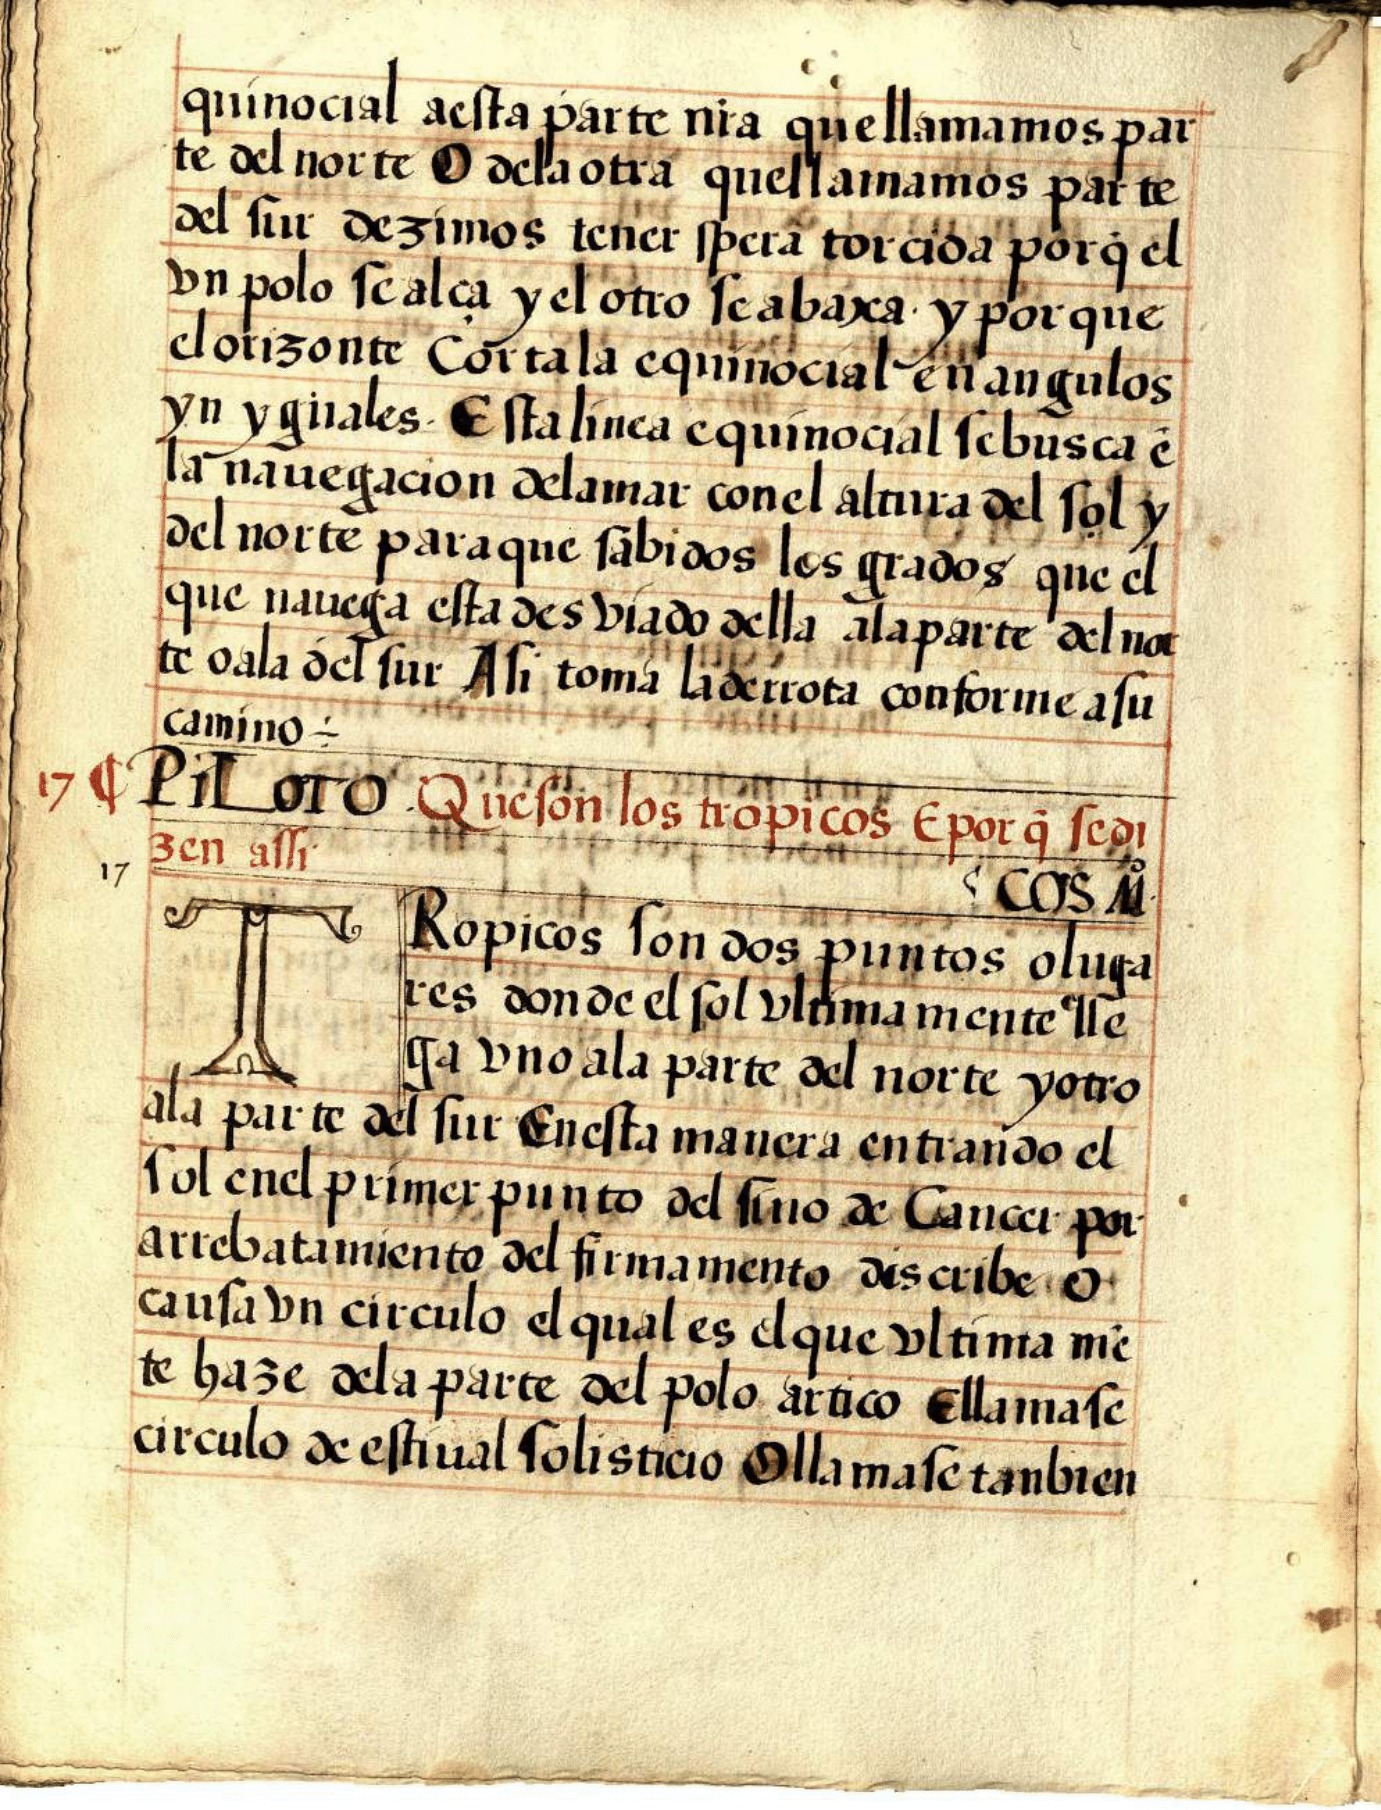 quinocial aesta parte nr̃a que llamamos par
te del norte O dela otra que llamamos parte
del sur dezimos tener spera torcida porq̃ el
vn polo se alça y el otro se abaxa · y por que
el orizonte Corta la equinocial en angulos
yn yguales · Esta linea equinocial se busca ẽ
la nauegacion dela mar con el altura del sol y
del norte para que sabidos los grados que el
que nauega esta desviado della ala parte del nor
te o ala del sur Asi toma la derrota conforme a su
camino ÷
17 ¶ PiLOTO . Que son los tropicos E por q̃ se di
zen assi
17
COS M͂o.
TRopicos son dos puntos o luga
res donde el sol vltimamente lle
ga vno ala parte del norte y otro
ala parte del sur En esta manera entrando el
sol enel primer punto del sino de Cancer por
arrebatamiento del firmamento discribe O
causa vn circulo el qual es el que vltima mẽ
te haze dela parte del polo artico E llamase
circulo de estiual solisticio O llamase tanbien